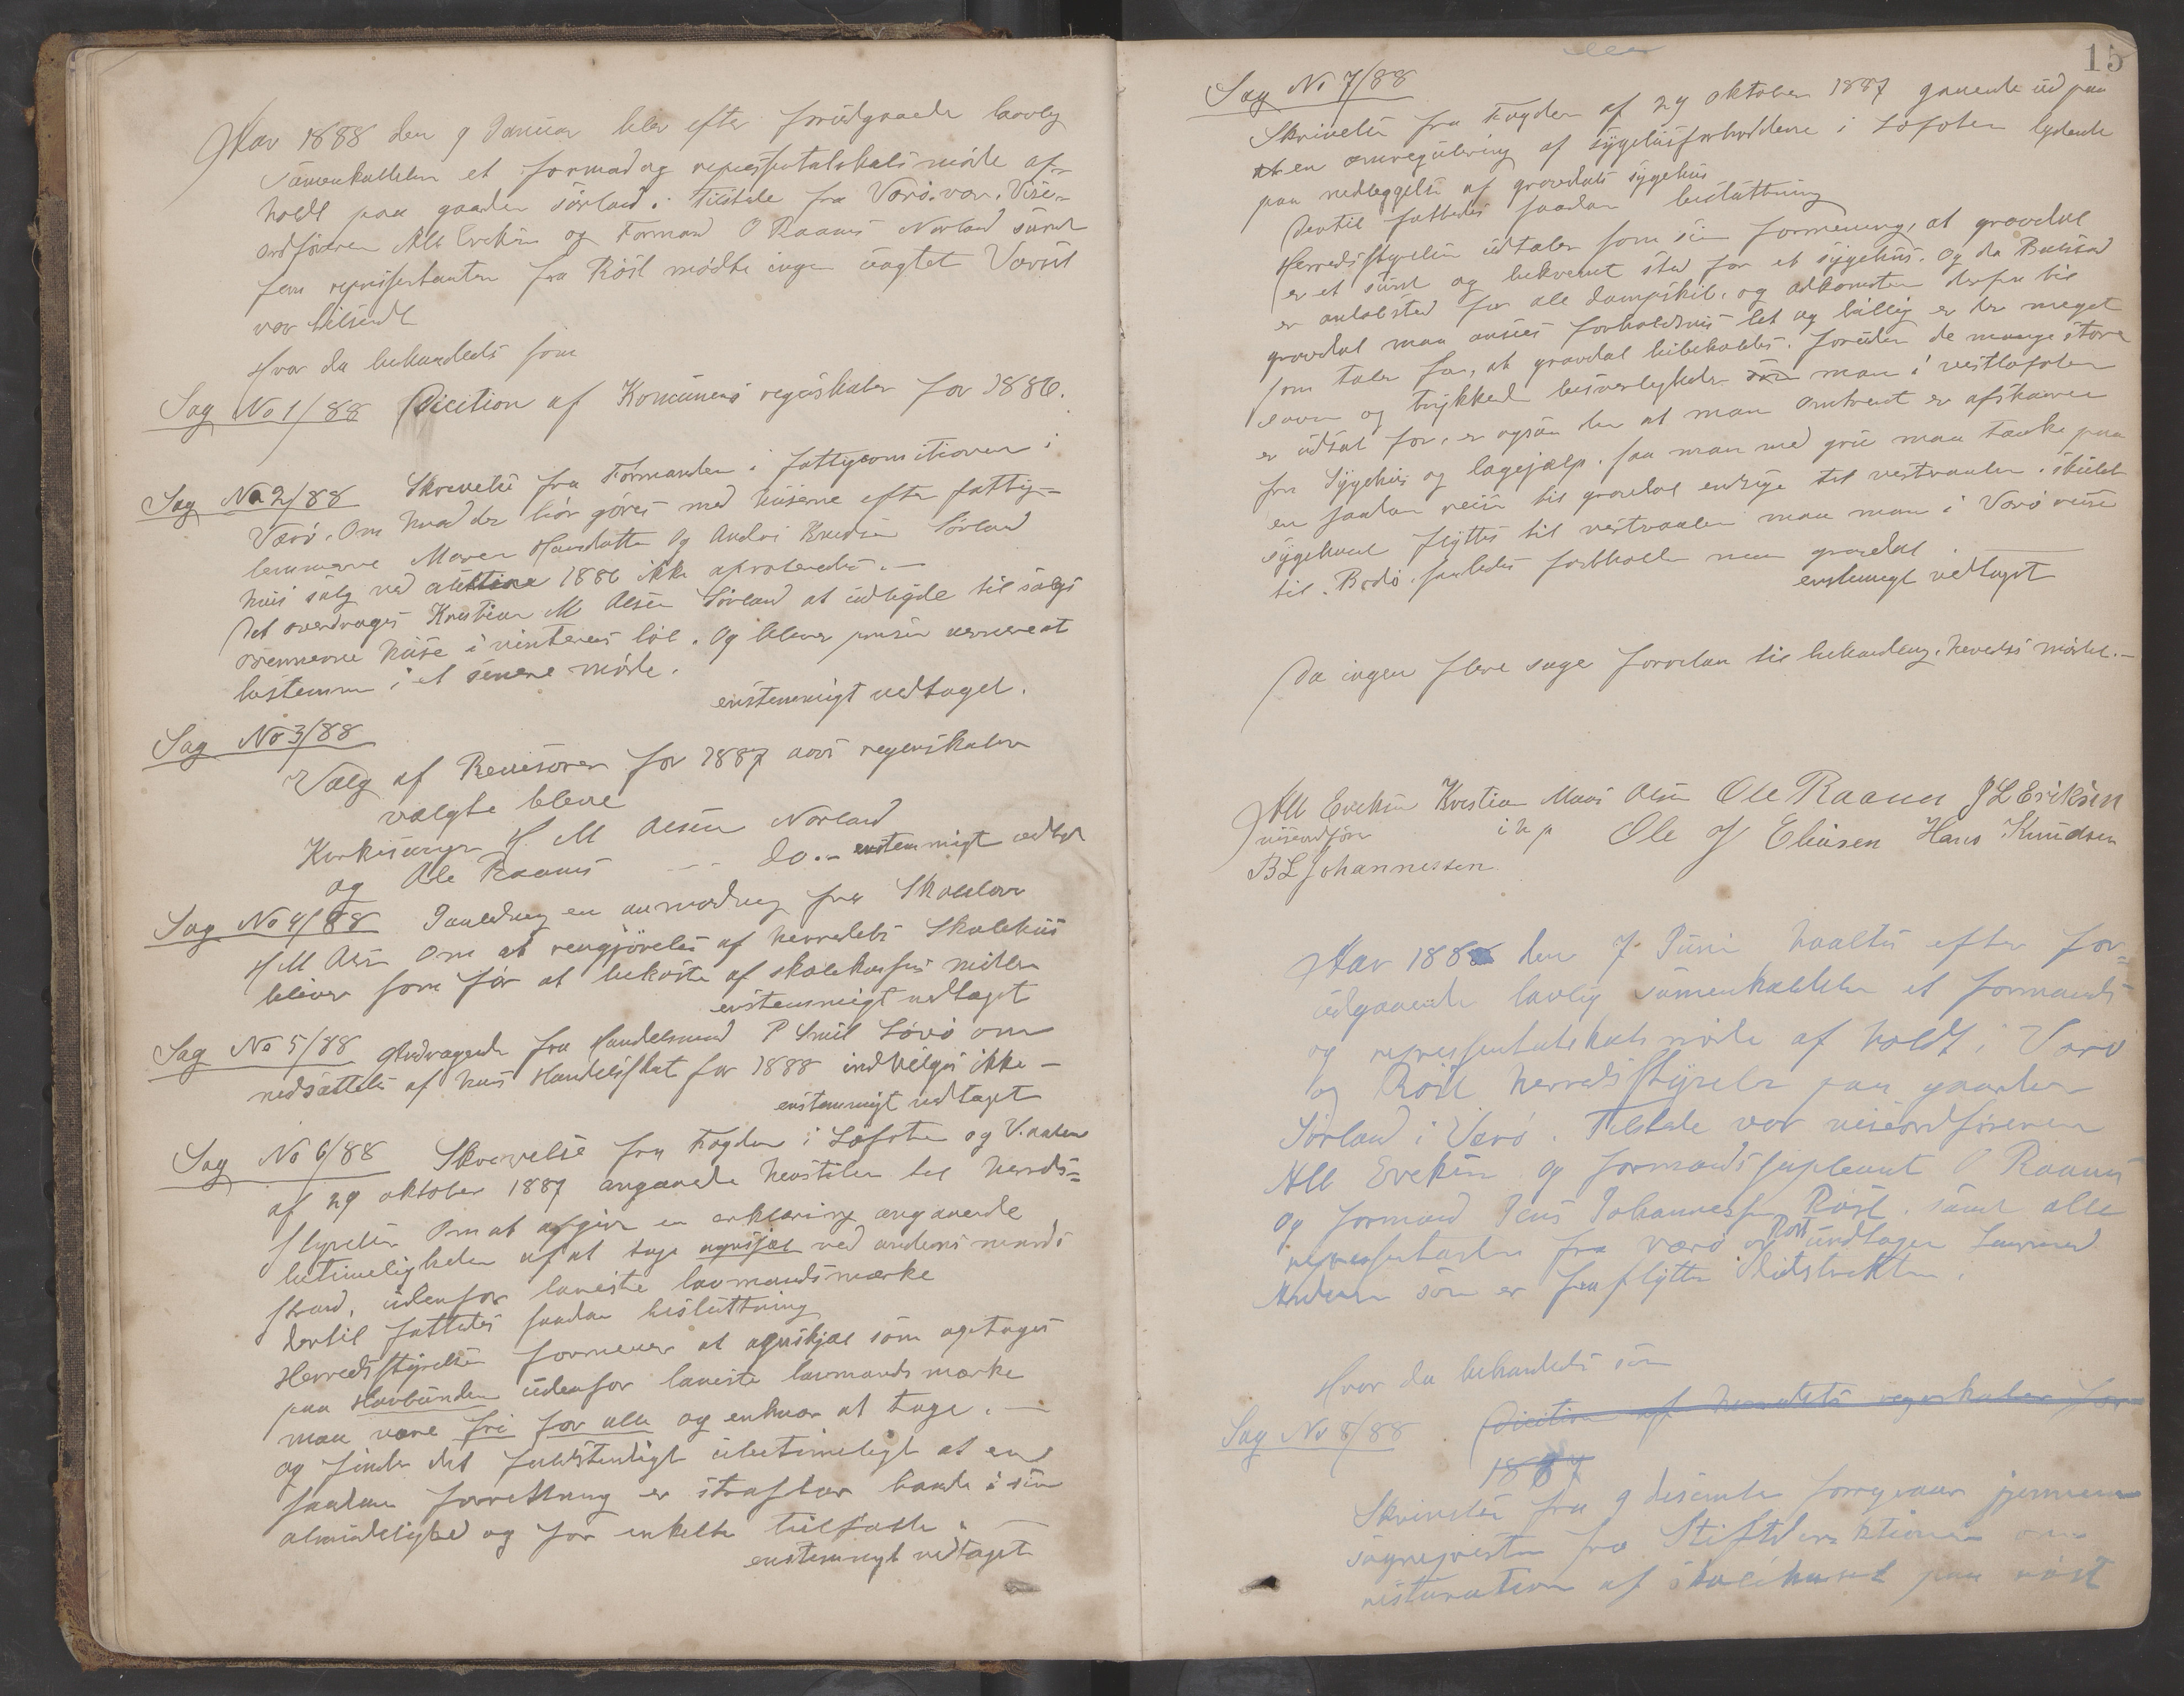 Aar 1888 den 9 Januar blev efter forudgaaende lovlig
Samenkaldelse et formand og representatskabs møde af-
holdt paa gaarden Sørland. Tilstede fra Værø var Vise-
ordføreren Alb Ereksen og Formand O Raanes Norland samt
fem representanter fra Røst mødte ingen uagtet Varsel
var tilsendt
Hvor da behandledes som
Sag No 1/88 Dicition af Komunens regnskaber for 1886.
Sag No 2/88 Skrivelse fra Formanden i fattigcomitionen i
Værø. Om hvad der bør gøres med husene efter fattig-
lemmerne Maren Hansdatter og Andrei Knudsen Sørland
hvis salg ved auktion 1886 ikke aproberedes. —
Det overdrages Kristian M Olsen Sørland at udbyde til salgs
ovennevne huse i vinterens løb. Og bliver prisen nermere at
bestemme i et senere møde.
enstemmigt vedtaget.
Sag No 3/88
Valg af Revisorer for 1887 aars regnskaber
valgte bleve
Kirkesanger H. M Olsen Norland
og Ole Raanes — do. — enstemmigt vedtat
Sag No 4/88 I anledning en anmodning fra Skolelærer
H M Olsen Om at rengjørelse af herredets Skolehus
bliver som før at bekoste af skolekassens midler
enstemmigt vedtaget
Sag No 5/88 Andragende fra Handelsmand P Smit Sørø om
nedsættelse af hans Handelsskat for 1888 indvilges ikke —
enstemmigt vedtaget
Sag No 6/88 Skrivelse fra Fogden i Lofoten og V.aalen
af 29 oktober 1887 angaaende henstilen til herreds-
styrelsen Om at afgive en erklæring angaaende
betimeligheden af at tage agnsjæl ved andens mands
strand, udenfor laveste lavmandsmærke
dertil fattedes saadan beslutning
Herredsstyrelsen formener at agnskjæl som optages
paa Havbunden udenfor laveste lavmands mærke
maa være fri for alle og enhver at tage. —
og finder det fuldstendigt ubetimeligt at en
saadan forretning er strafbar baade i sin
almindelighed og for enkelte tilfælde. —
enstemmigt vedtaget
15
Sag No 7/88
Skrivelse fra Fogden af 29 oktober 1887 gaaende ud paa
en omregulering af sygehusforholdene i Lofoten lydende
paa nedleggelse af gravdals sygehus
Dertil fattedes saadan beslutning
Herredsstyrelsen udtaler som sin formening, at gravdal
er et sundt og bekvemt sted for et sygehus. Og da Balstad
er anløbsted for alle dampskib. og adkomsten derfra til
gravdal maa ansees forholdsvis let og billig er der meget
som taler for, at gravdal beibeholdes. foruden de mange store
savn og trykkede besverligheder som man i vestlofoten
er udsat for, er ogsaa der at man omtrent er afskaaren
fra Sygehus og lægejælp. saa man med gru maa tænke paa
en saadan reise til gravdal endsige til vestvaalen. skulde
sygehuset flyttes til vestvaalen maa man i Værø reise
til. Bodø. saaledes fastholder man gravdal.
enstemmigt vedtaget
Da ingen flere sage forelaa til behandling. hevedes mødet. —
Alb Ereksen Kristian Maas Olsen Ole Raanes J L Eriksen
viseordfører i h p Ole J Eliasen Hans Knudsen
B L Johannessen
Aar 1888 den 7 Juni holtes efter for-
udgaaende lovlig samenkaldelse et formands
og representatskabs møde af holdt i Værø
og Røst herredsstyrelse paa gaarden
Sørland i Værø. Tilstede var viseordføreren
Alb Ereksen og formandssupleant O Raanes
og formand Jens Johannessen Røst. samt alle
representanter fra værø og Røst undtagen Laurits
Andersen som er fraflyttet distriktet.
Hvor da behandledes som
Sag No 8/88. Dicition af herredets regnskaber for
1887
Skrivelse fra 9 desember forrige aar jennem
sogneprester fra Stiftsdirektionen om
restoration af skolehuset paa røst